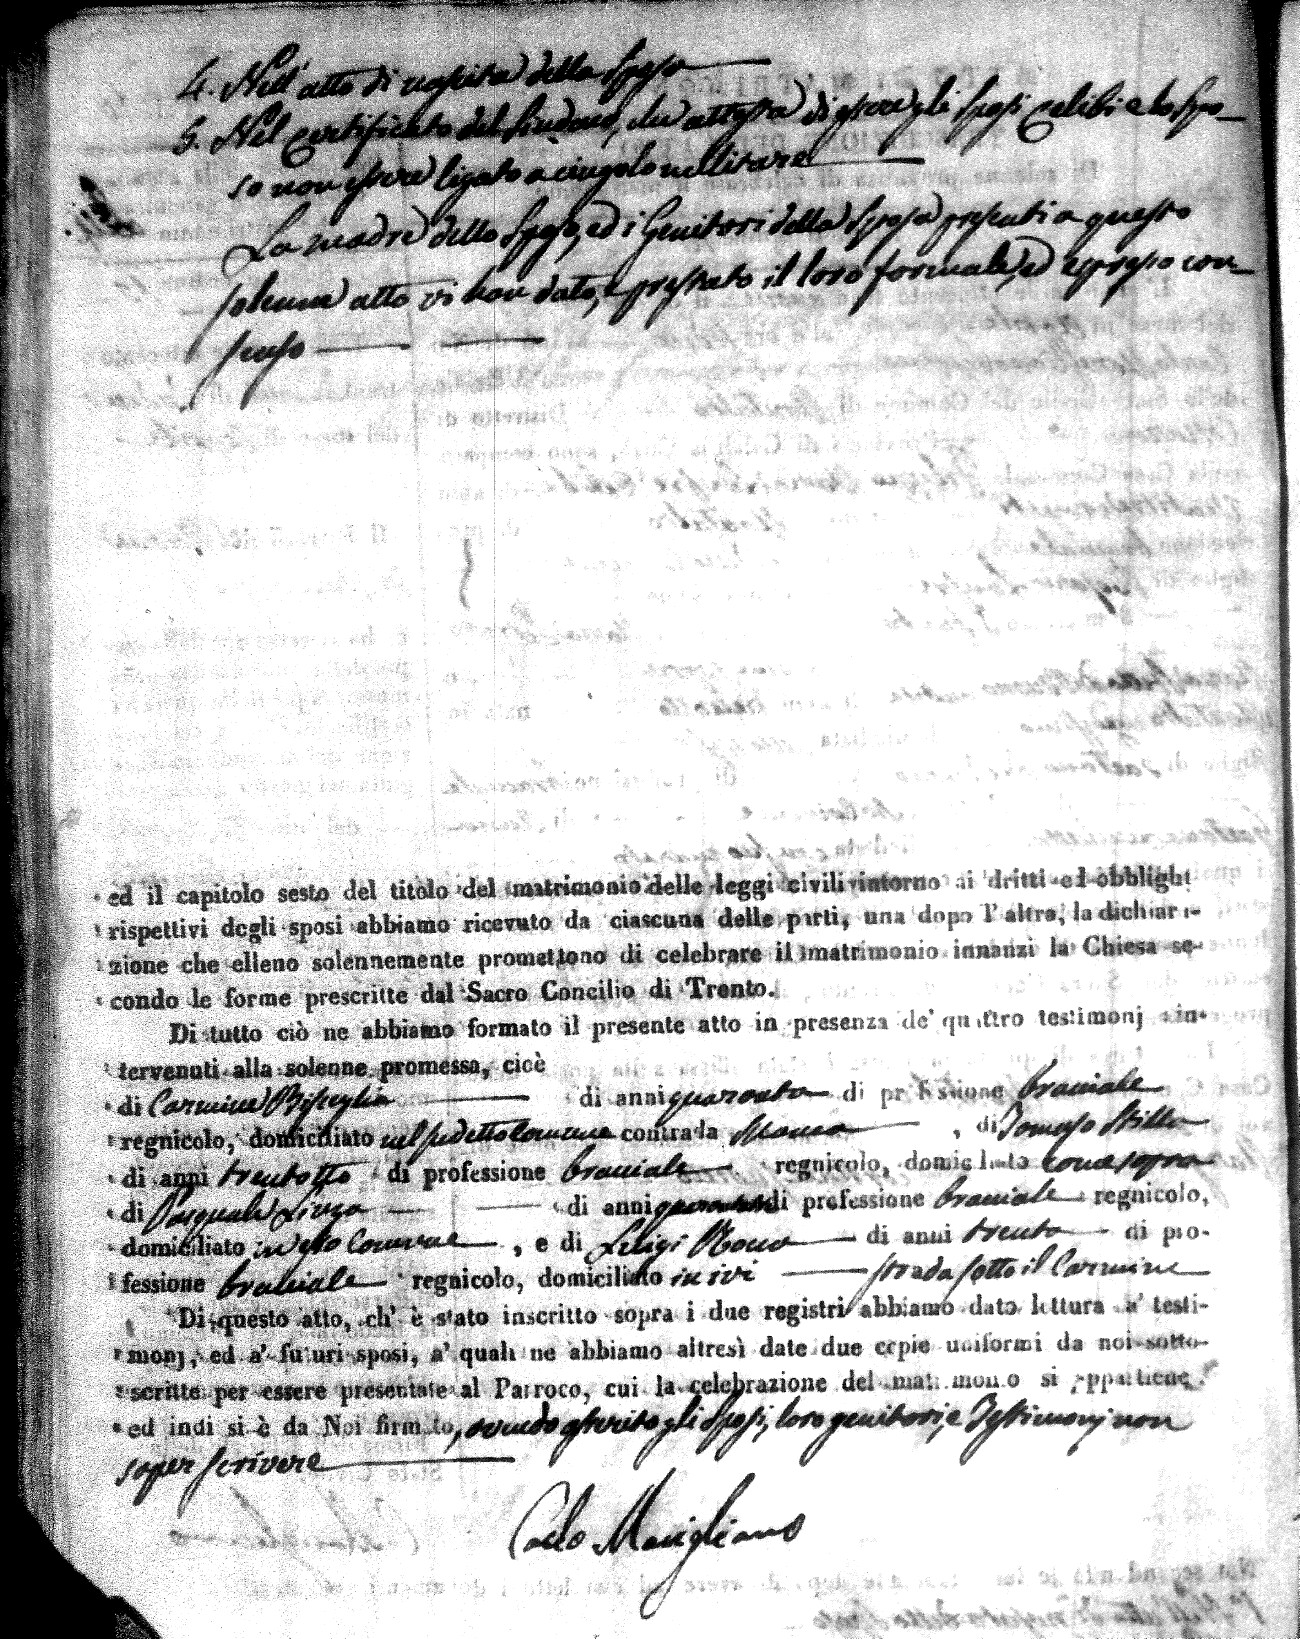 4. Nell'atto di nascita della Sposa
5. Nel certificato del Sindaco, che attesta di essere gli Sposi celibi e lo Spo-
so non essere ligato a cingolo militare
La madre dello Sposo, ed i Genitori della Sposa presenti a questo
solenne atto vi han dato, e prestato il loro formale, ed espresso con-
senso
ed il capitolo sesto del titolo del matrimonio delle leggi civili intorno ai dritti ed obblighi
rispettivi degli sposi abbiamo ricevuto da ciascuna delle parti, una dopo l'altra, la dichiara-
zione che elleno solennemente promettono di celebrare il matrimonio innanzi la Chiesa se-
condo le forme prescritte dal Sacro Concilio di Trento.
Di tutto ciò ne abbiamo formato il presente atto in presenza de' quattro testimonj in-
tervenuti alla solenne promessa, cioè
di Carmine Bisceglia di anni quaranta di professione braciale
regnicolo, domiciliato nel sudetto Comune contrada , di Tomaso Stilla
di anni trentotto di professione braciale regnicolo, domiciliato come sopra
di Pasquale di anni di professione braciale regnicolo,
domiciliato in Comune , e di Luigi di anni trenta di pro-
fessione braciale regnicolo, domiciliato in ivi strada sotto il Carmine
Di questo atto, ch' è stato inscritto sopra i due registri abbiamo dato lettura a' testi-
monj, ed a' futuri sposi, a' quali ne abbiamo altresì date due copie uniformi da noi sotto-
scritte per essere presentate al Parroco, cui la celebrazione del matrimonio si appartiene
ed indi si è da Noi firmato, avendo asserito gli Sposi, loro genitori, e Testimonj non
saper scrivere
Carlo Marigliano